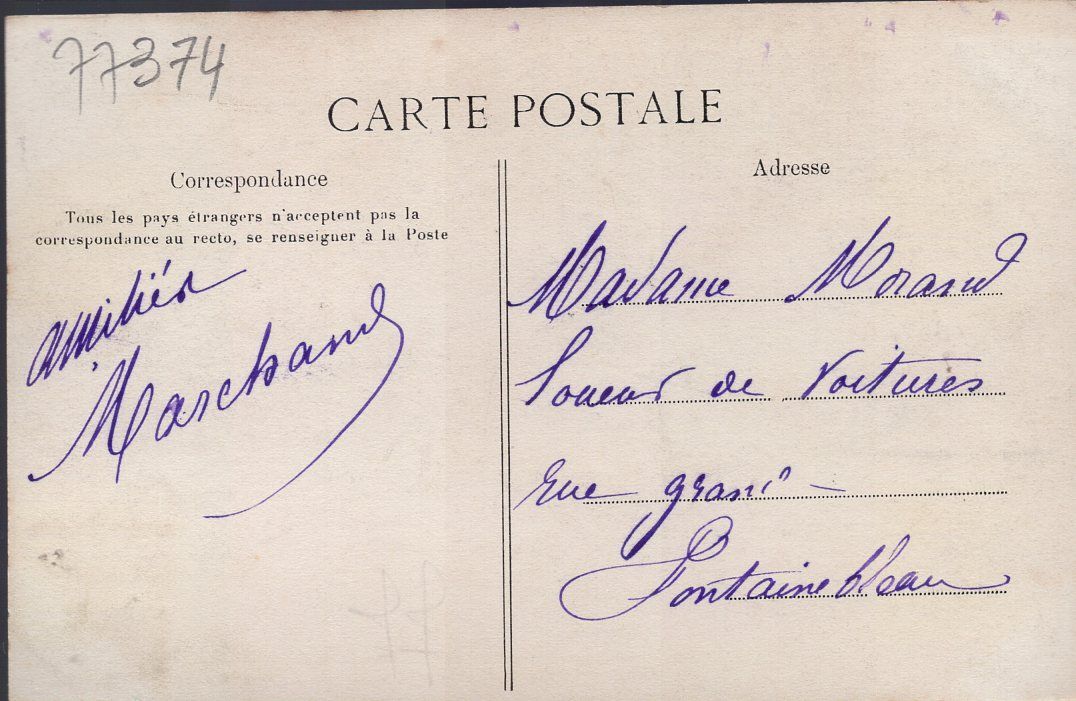 77374
CARTE POSTALE
Correspondance
Tous les pays étrangers n'acceptent pas la
correspondance au recto, se renseigner à la Poste
amitiés
Marchand
Adresse
Madame Morand
Loueur de Voitures
rue grand
Fontainebleau